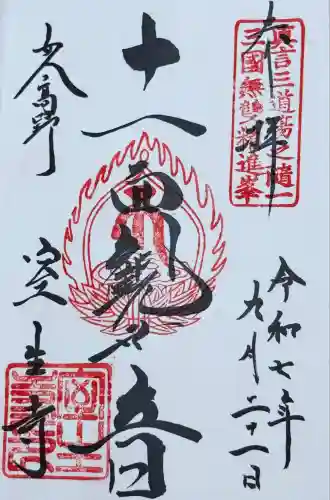 奉拝
真言三道場之随一
三國無雙ノ精進峯
令和七年
九月二十一日
十一面観世音
女人高野
室生寺